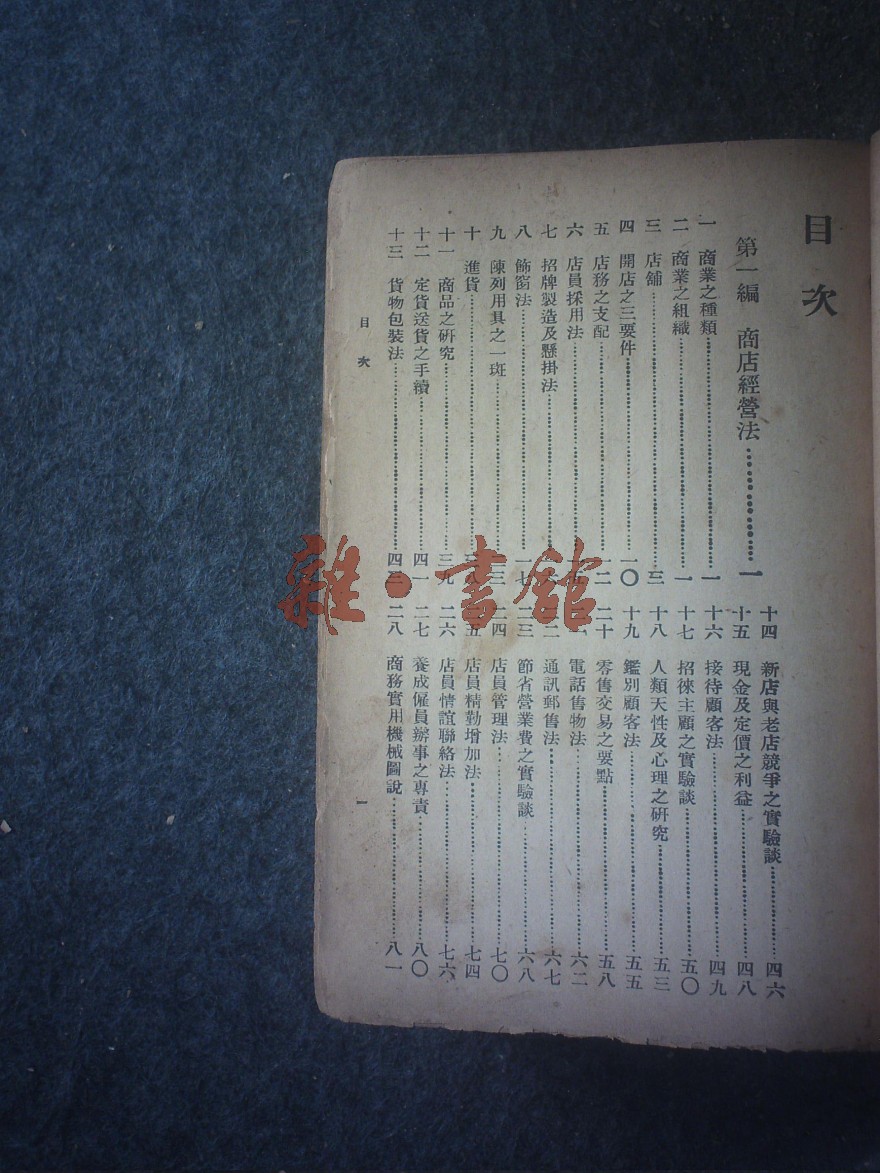 目次
第一編 商店經營法……………一
一 商業之種類……………一
二 商業之組織……………一
三 店舖……………三
四 開店之三要件……………一〇
五 店務之支配……………一二
六 店員採用法……………
七 招牌製造及懸掛法……………
八 飾窗法……………一七
九 陳列用具之一斑……………三
十 進貨……………
十一 商品之研究……………三九
十二 定貨送貨之手續……………四一
十三 貨物包裝法……………四三
十四 新店與老店競爭之實驗談……………四六
十五 現金及定價之利益……………四八
十六 接待顧客法……………四九
十七 招徠主顧之實驗談……………五〇
十八 人類天性及心理之研究……………五三
十九 鑑別顧客法……………五五
二十 零售交易之要點……………五八
二一 電話售物法……………六二
二二 通訊郵售法……………六七
二三 節省營業費之實驗談……………六八
二四 店員管理法……………七〇
二五 店員精勤增加法……………七四
二六 店員情誼聯絡法……………七六
二七 養成僱員辦事之專責……………八〇
二八 商務實用機械圖說……………八一
目次
一
雜·書館